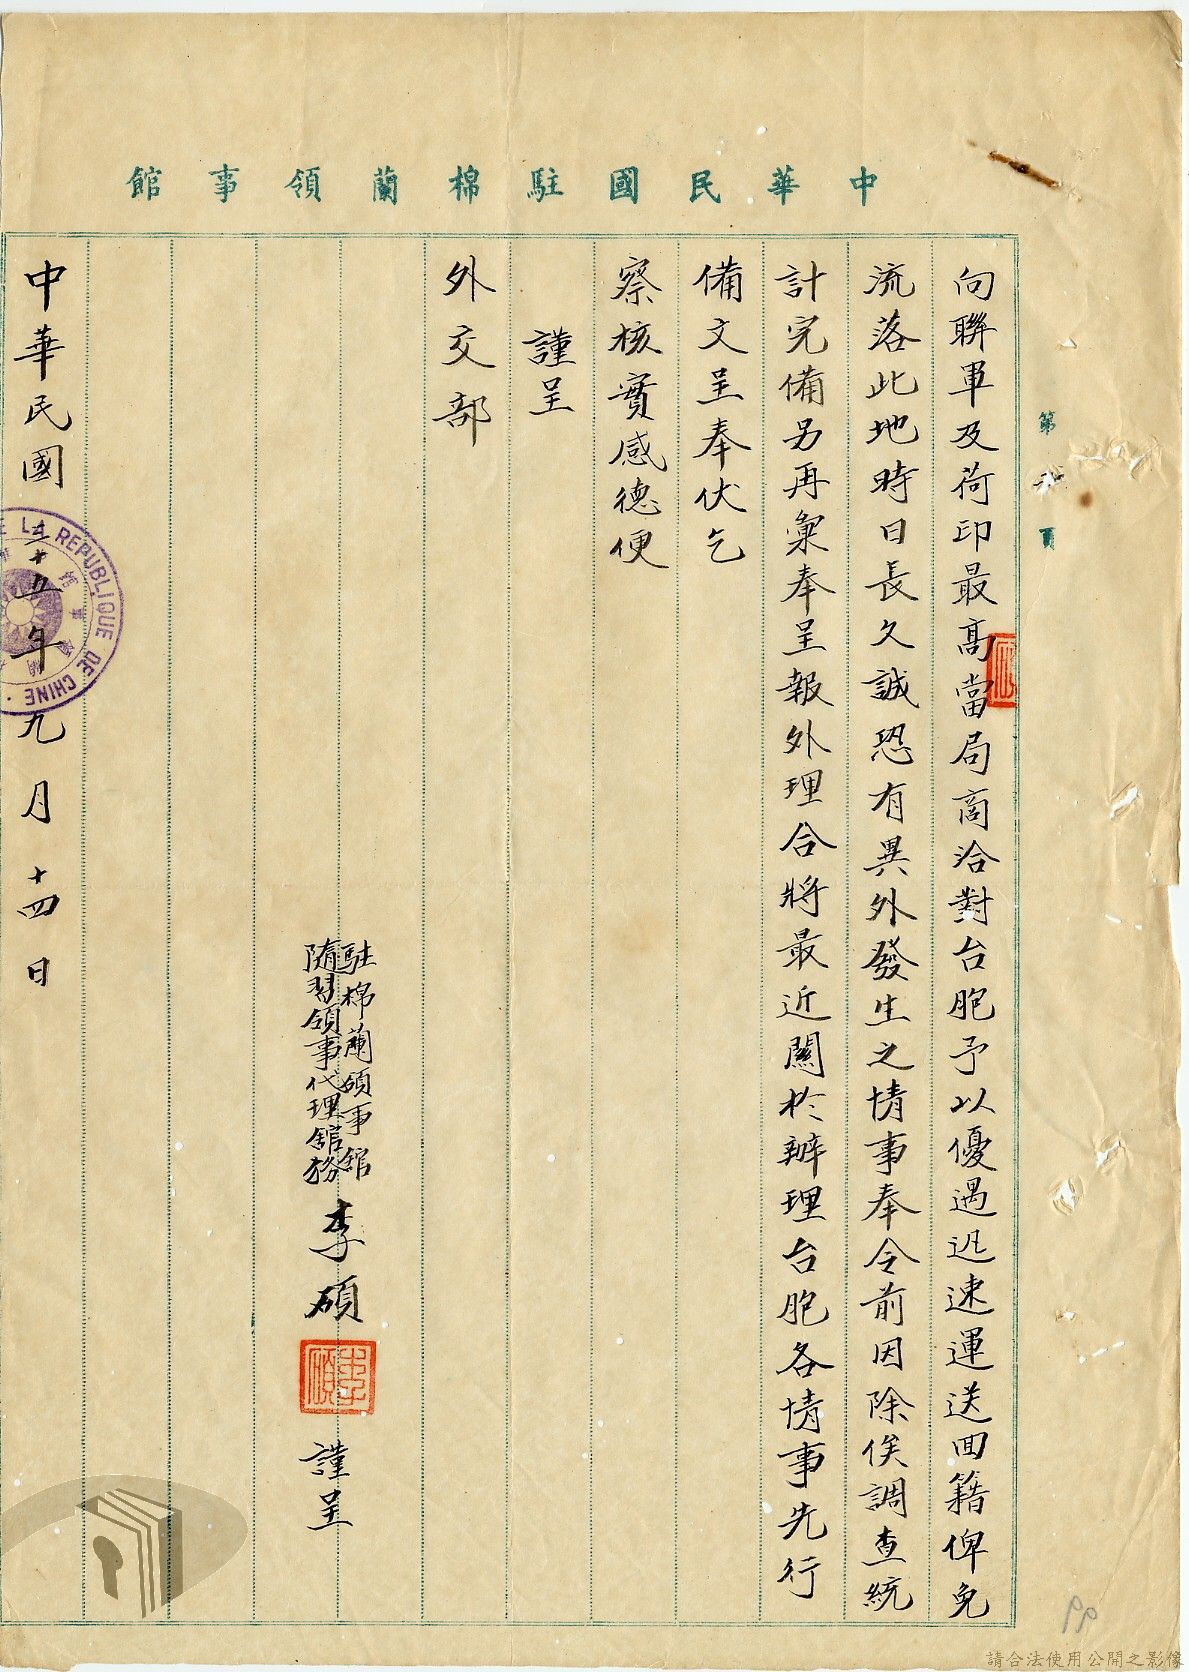 中華民國駐棉蘭領事館
第 頁
向聯軍及荷印最高當局商洽對台胞予以優遇迅速運送回籍俾免
流落此地時日長久誠恐有異外發生之情事奉令前因除俟調查統
計完備另再彙奉呈報外理合將最近關於辦理台胞各情事先行
備文呈奉伏乞
察核實感德便
謹呈
外交部
駐棉蘭領事館
隨習領事代理館務
李碩
謹呈
中華民國三十五年九月十四日
LA REPUBLIQUE DE CHINE
99
請合法使用公開之影像